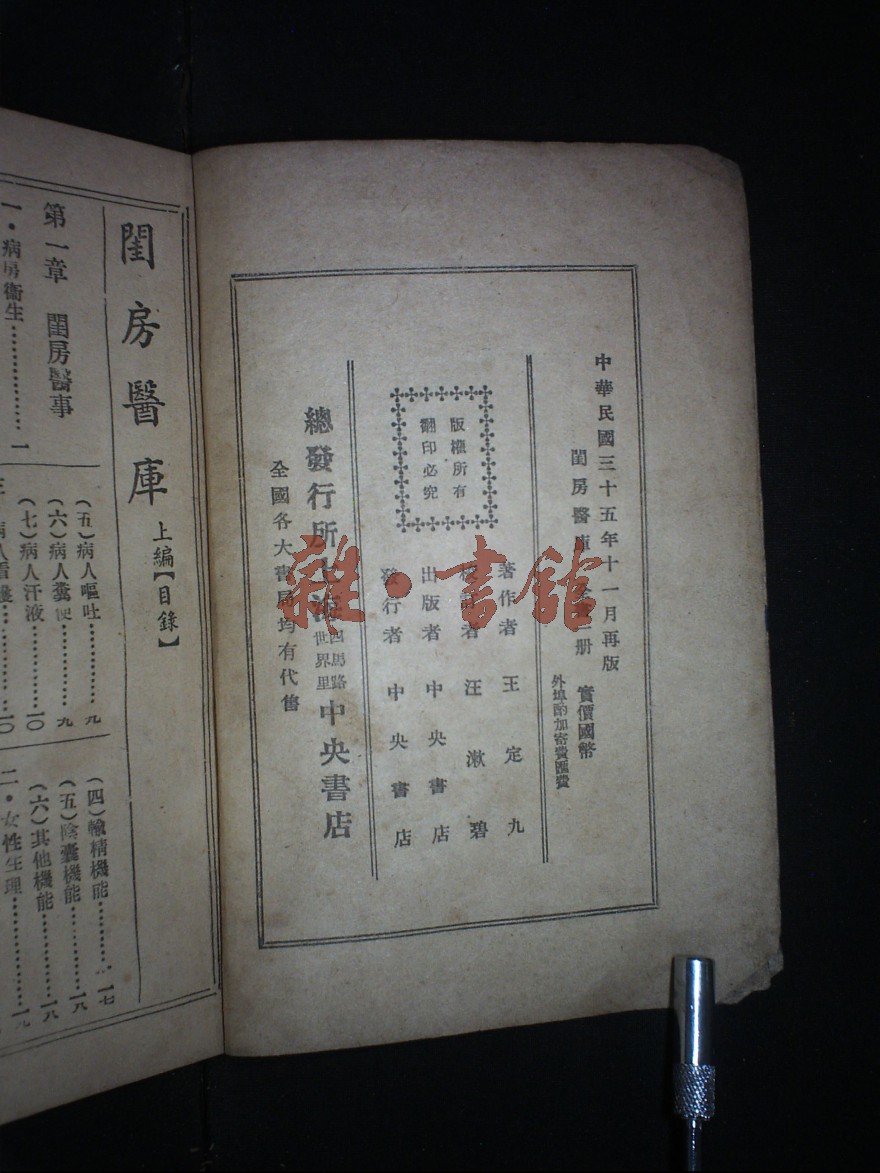 中華民國三十五年十一月再版
閨房醫庫
册
實價國幣
外埠酌加寄費匯費
著作者 王定九
校訂者 汪漱碧
出版者 中央書店
發行者 中央書店
版權所有
翻印必究
總發行所上海
四馬路
世界里
中央書店
全國各大書局均有代售
雜·書館
閨房醫庫 上編【目錄】
第一章 閨房醫事
一·病房衞生 一
(五)病人嘔吐 九
(六)病人糞便 九
(七)病人汗液 一〇
病人看護 一〇
(四)輸精機能 一七
(五)陰囊機能 一八
(六)其他機能 一八
二·女性生理